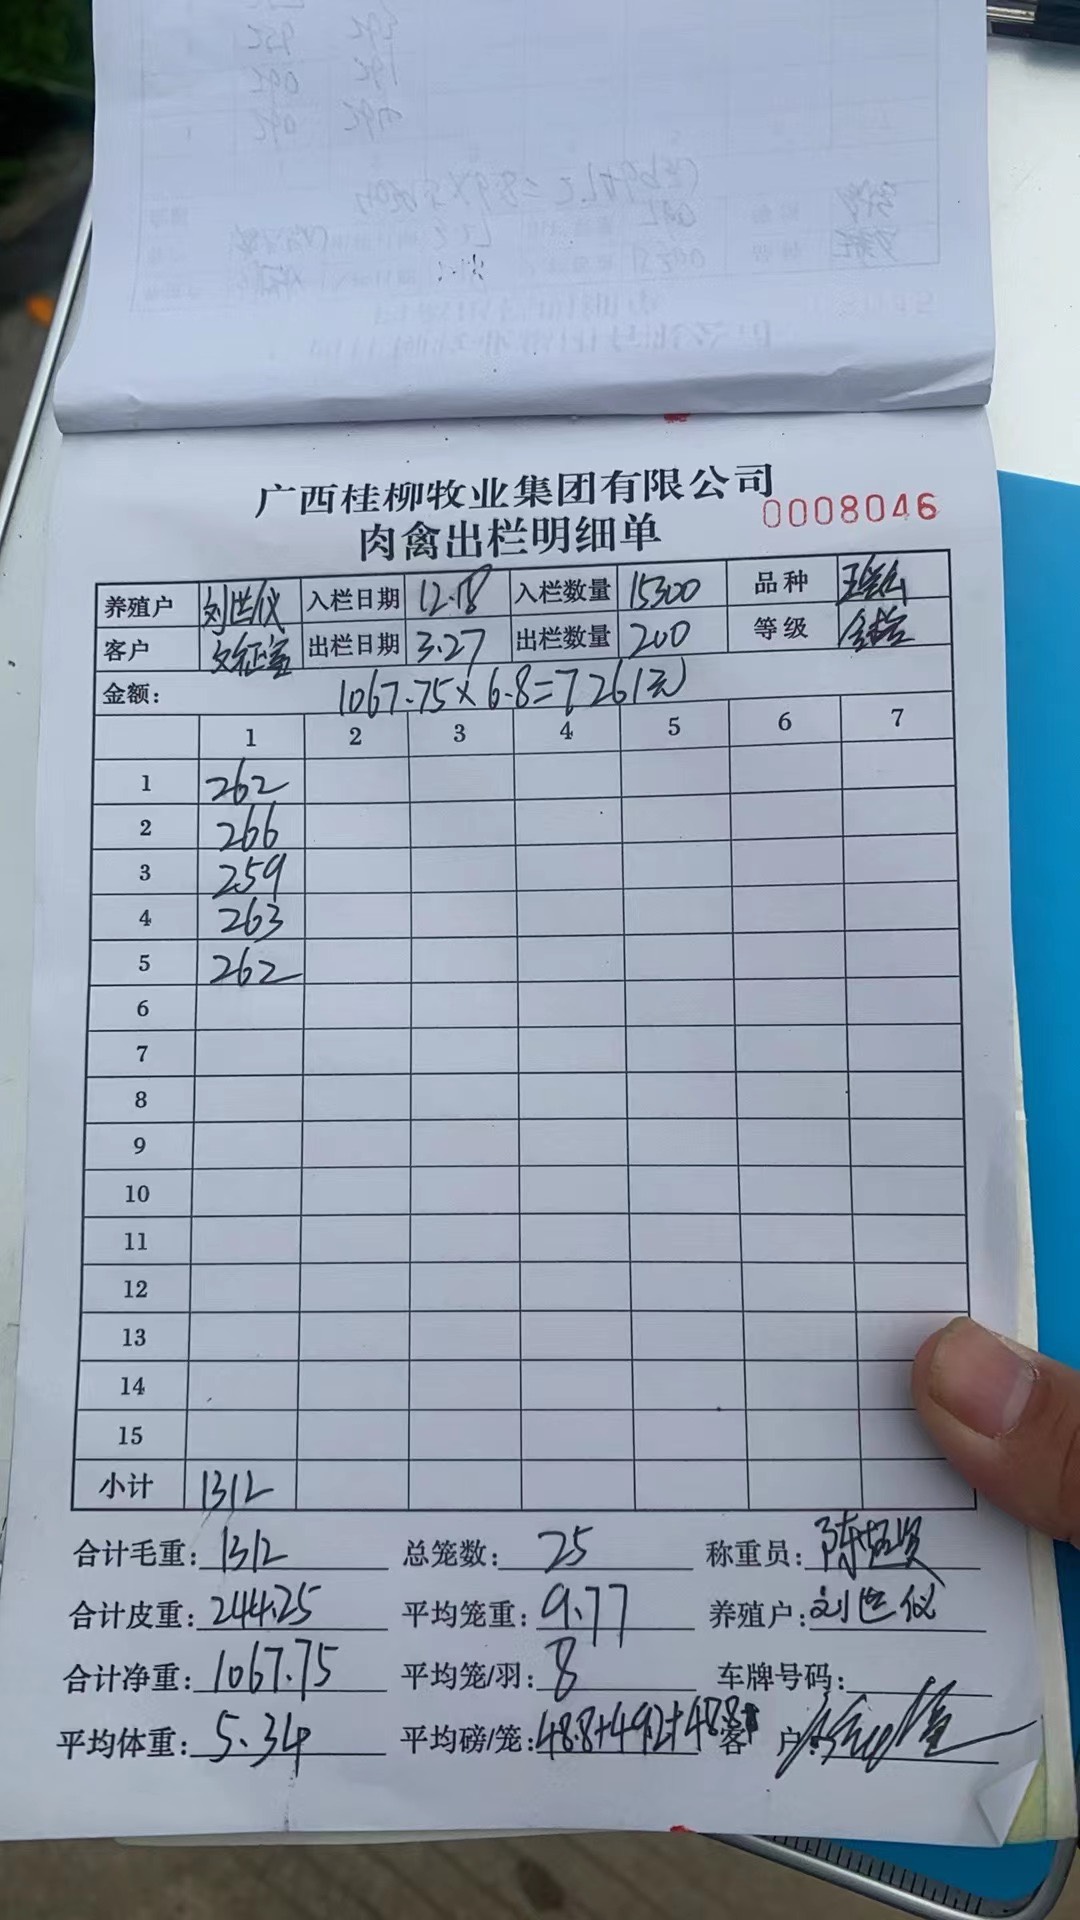 广西桂柳牧业集团有限公司
肉禽出栏明细单
0008046
养殖户 刘世仪 入栏日期 12.18 入栏数量 15300 品种
客户 出栏日期 3.27 出栏数量 200 等级
金额: 1067.75×6.8=7261元
1 2 3 4 5 6 7
1 262
2 266
3 259
4 263
5 262
6
7
8
9
10
11
12
13
14
15
小计 1312
合计毛重: 1312 总笼数: 25 称重员:
合计皮重: 244.25 平均笼重: 9.77 养殖户: 刘世仪
合计净重: 1067.75 平均笼/羽: 8 车牌号码:
平均体重: 5.34 平均磅/笼: 48.8+49.2+48.8 客户: